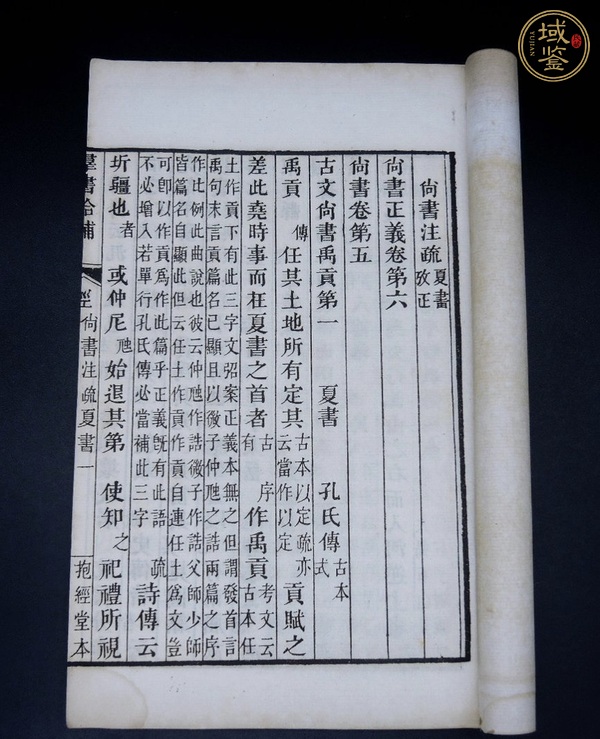 尚書注疏夏書攷正
尚書正義卷第六
尚書卷第五
古文尚書禹貢第一　夏書　孔氏傳古本式
禹貢傳任其土地所有定其古本以定疏亦云當作以定貢賦之
差此堯時事而在夏書之首者古有序作禹貢考文云古本任
土作貢下有此三字文弨案正義本無之但謂發首言
禹句末言貢篇名已顯且以微子仲虺之誥兩篇之序
作比例此曲說也彼云仲虺作誥微子作誥父師少師
皆篇名自顯此但云任土作貢作貢自連任土爲文豈
可卽以作貢爲作此篇乎正義旣有此語疏詩傳云
不必增入若單行孔氏傳必當補此三字
圻疆也者或仲尼虺始退其第使知之祀禮所視
羣書拾補　經　尚書注疏夏書　一　抱經堂本
域鉴
YUJIAN